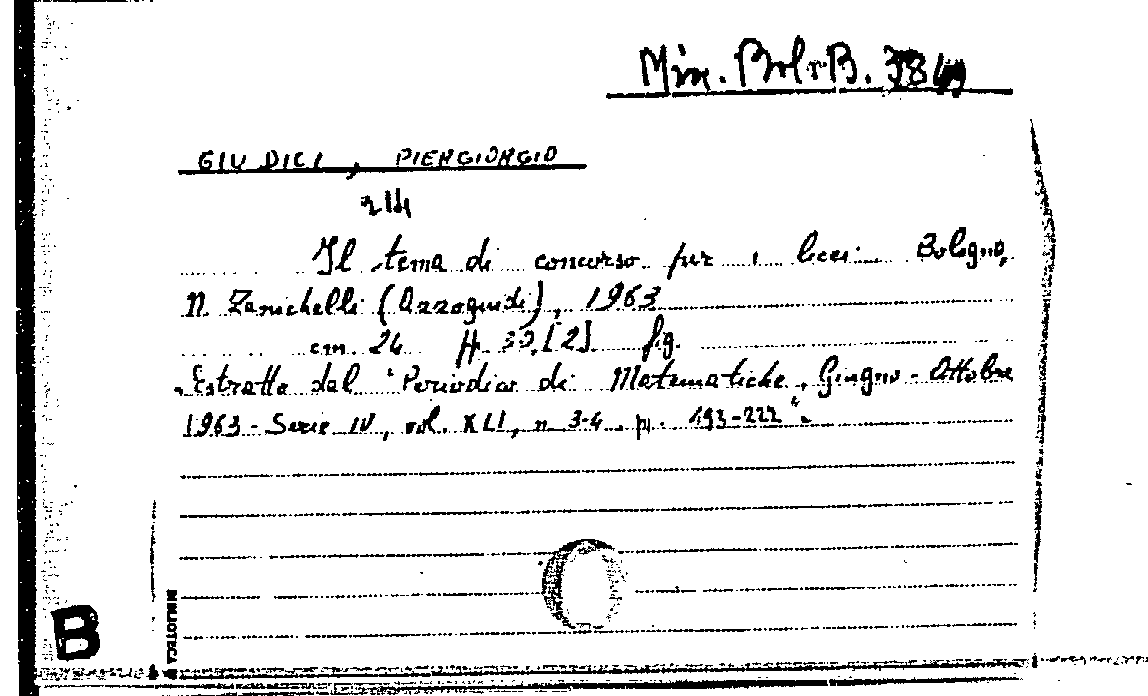 Misc. Bol. B.
GIUDICI, PIERGIORGIO
214
Il tema di concorso per i licei Bologna,
N. Zanichelli (Azzoguidi), 1963
cm. 24 pp. 30, [2] fig.
"Estratto dal "Periodico di Matematiche, Giugno - Ottobre
1963 - Serie IV, vol. XLI, n 3-4 . pp. 193-222".
BIBLIOTECA
B